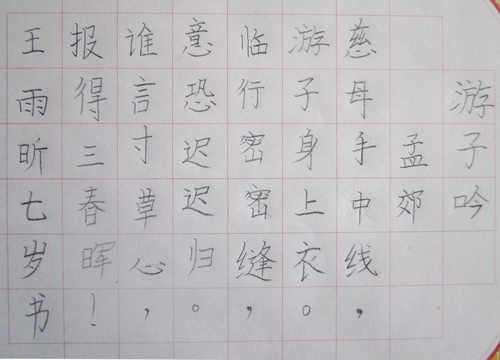 游子吟
孟郊
慈母手中线，
游子身上衣。
临行密密缝，
意恐迟迟归。
谁言寸草心，
报得三春晖！
王雨昕七岁书